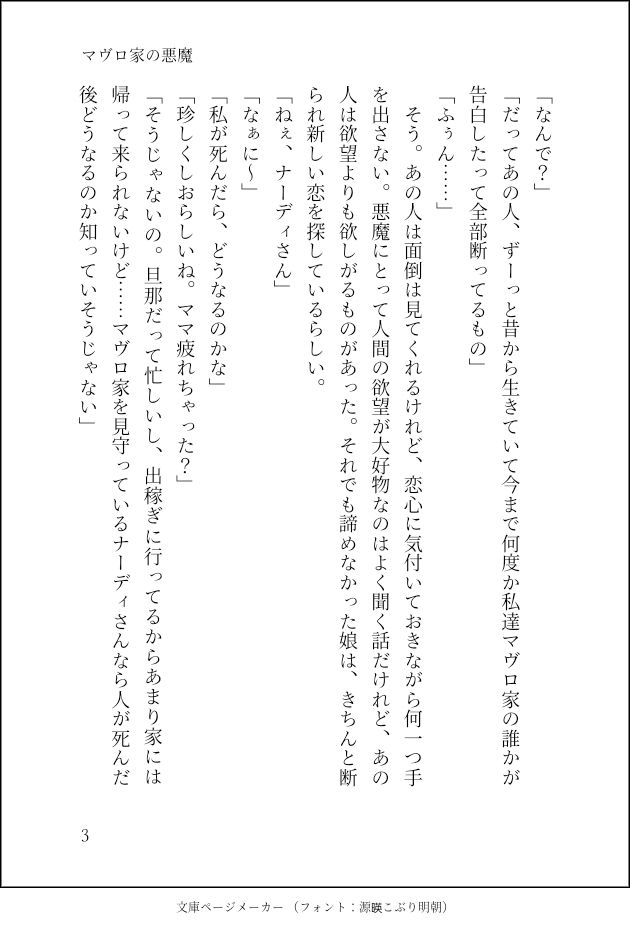 マヴロ家の悪魔
「なんで？」
「だってあの人、ずーっと昔から生きていて今まで何度か私達マヴロ家の誰かが
告白したって全部断ってるもの」
「ふぅん……」
　そう。あの人は面倒は見てくれるけれど、恋心に気付いておきながら何一つ手
を出さない。悪魔にとって人間の欲望が大好物なのはよく聞く話だけれど、あの
人は欲望よりも欲しがるものがあった。それでも諦めなかった娘は、きちんと断
られ新しい恋を探しているらしい。
「ねぇ、ナーディさん」
「なぁに～」
「私が死んだら、どうなるのかな」
「珍しくしおらしいね。ママ疲れちゃった？」
「そうじゃないの。旦那だって忙しいし、出稼ぎに行ってるからあまり家には
帰って来られないけど……マヴロ家を見守っているナーディさんなら人が死んだ
後どうなるのか知っていそうじゃない」
3
文庫ページメーカー（フォント：源暎こぶり明朝）